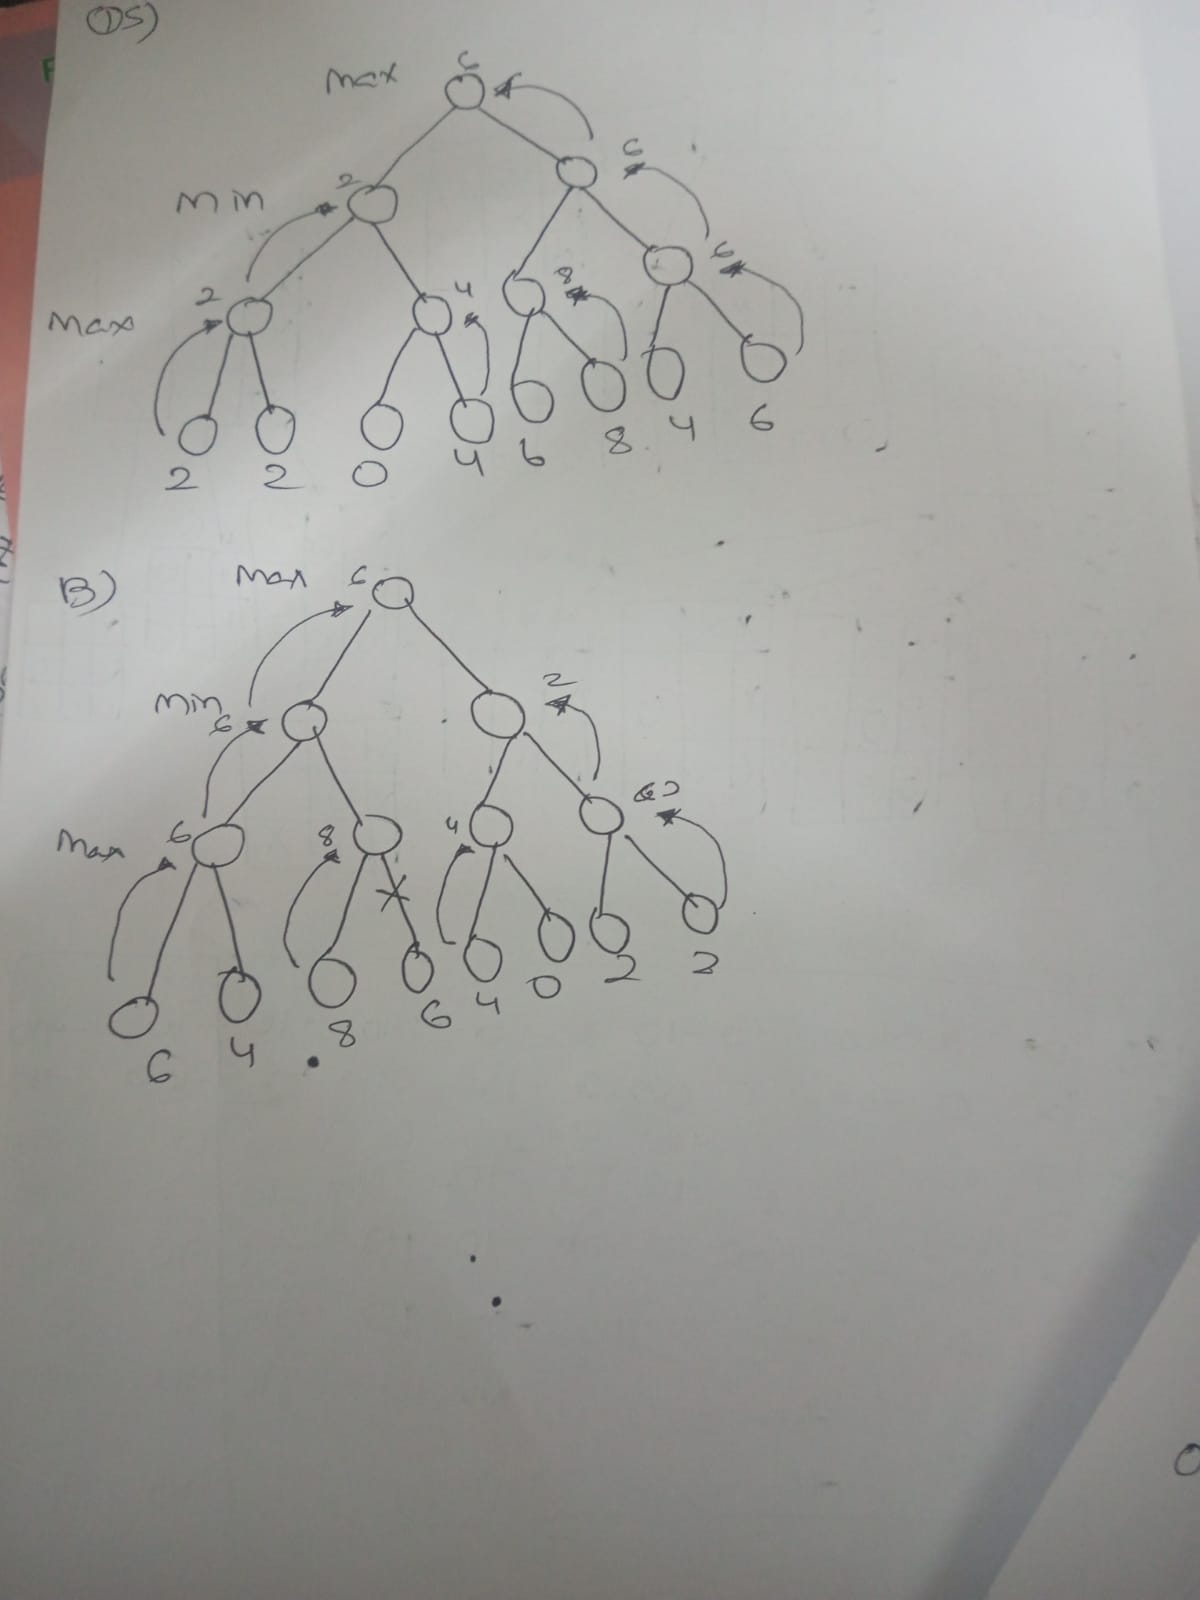 Q5)
max 6
6
min 2
6
8
2 4
max
2 2 0 4 6 8 4 6
B) max 6
min 6 2
max 6 8 4
6 4 8 6 4 0 2 2